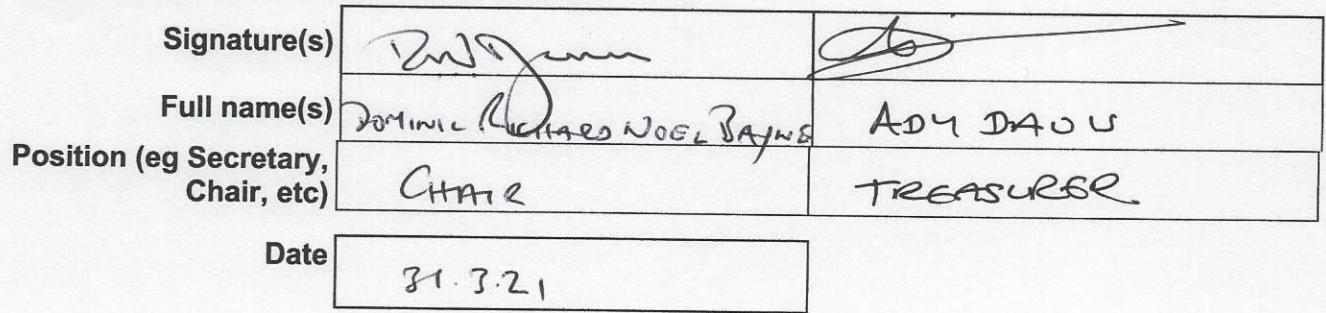 Signature(s)
Full name(s) DOMINIC RICHARD NOEL BAYNE ADY DAOU
Position (eg Secretary,
Chair, etc) CHAIR TREASURER
Date 31.3.21